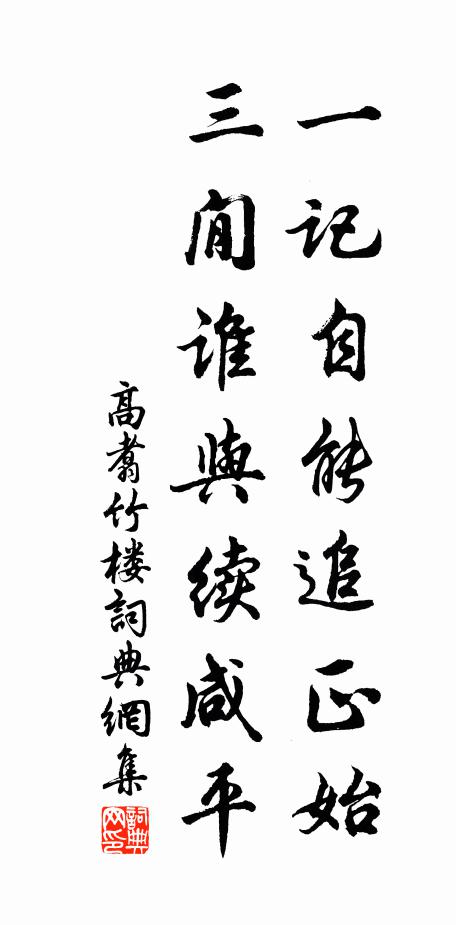 一记自能追正始
三间谁與续咸平
高翥竹楼詞典網集
詞典网印